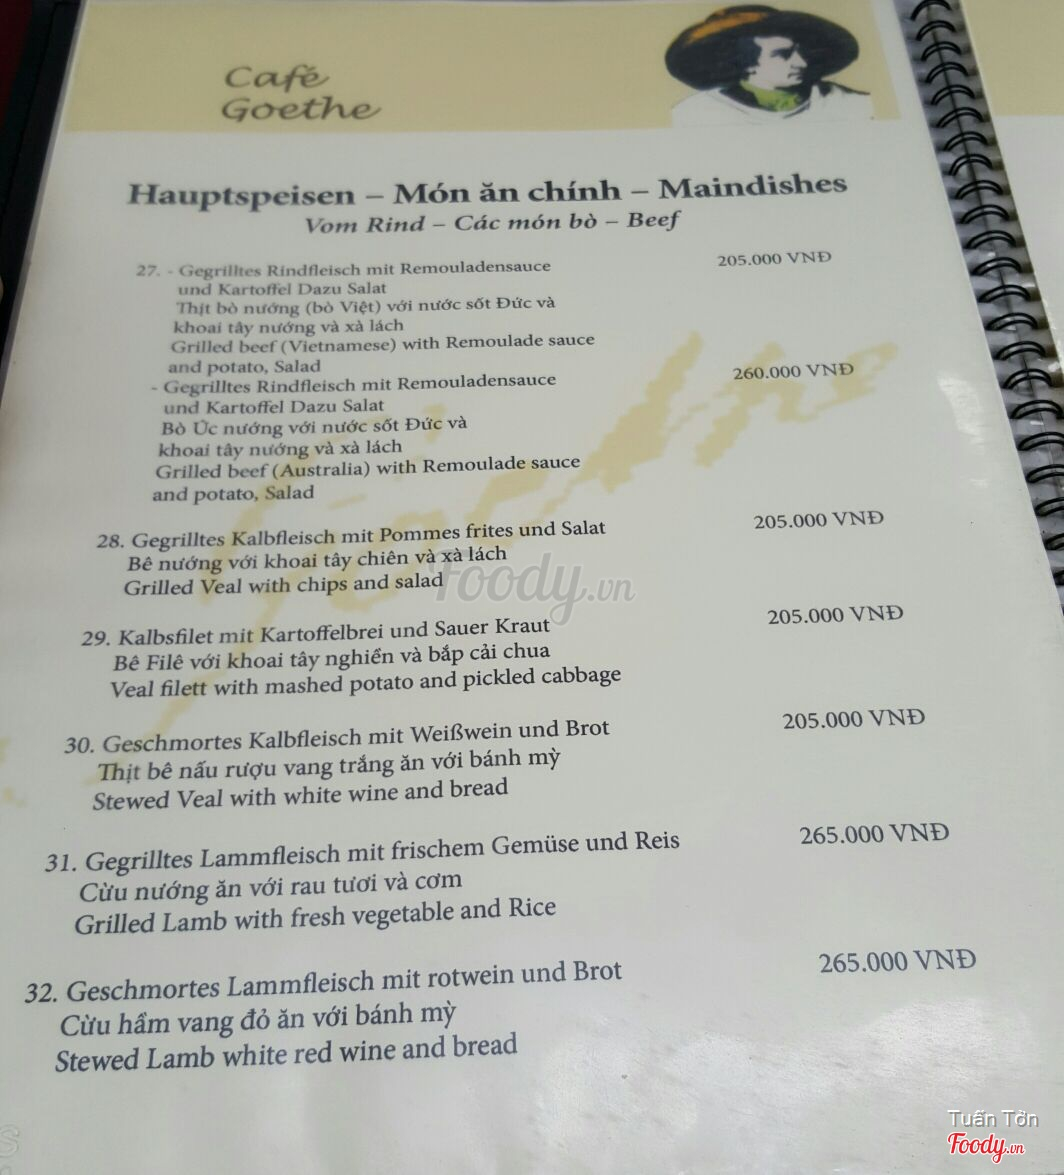 Café
Goethe
Hauptspeisen – Món ăn chính – Maindishes
Vom Rind – Các món bò – Beef
27. - Gegrilltes Rindfleisch mit Remouladensauce 205.000 VNĐ
und Kartoffel Dazu Salat
Thịt bò nướng (bò Việt) với nước sốt Đức và
khoai tây nướng và xà lách
Grilled beef (Vietnamese) with Remoulade sauce
and potato, Salad
- Gegrilltes Rindfleisch mit Remouladensauce 260.000 VNĐ
und Kartoffel Dazu Salat
Bò Úc nướng với nước sốt Đức và
khoai tây nướng và xà lách
Grilled beef (Australia) with Remoulade sauce
and potato, Salad
28. Gegrilltes Kalbfleisch mit Pommes frites und Salat 205.000 VNĐ
Bê nướng với khoai tây chiên và xà lách
Grilled Veal with chips and salad
Foody.vn
29. Kalbsfilet mit Kartoffelbrei und Sauer Kraut 205.000 VNĐ
Bê Filê với khoai tây nghiền và bắp cải chua
Veal filett with mashed potato and pickled cabbage
30. Geschmortes Kalbfleisch mit Weißwein und Brot 205.000 VNĐ
Thịt bê nấu rượu vang trắng ăn với bánh mỳ
Stewed Veal with white wine and bread
31. Gegrilltes Lammfleisch mit frischem Gemüse und Reis 265.000 VNĐ
Cừu nướng ăn với rau tươi và cơm
Grilled Lamb with fresh vegetable and Rice
32. Geschmortes Lammfleisch mit rotwein und Brot 265.000 VNĐ
Cừu hầm vang đỏ ăn với bánh mỳ
Stewed Lamb white red wine and bread
Tuấn Tờn
Foody.vn